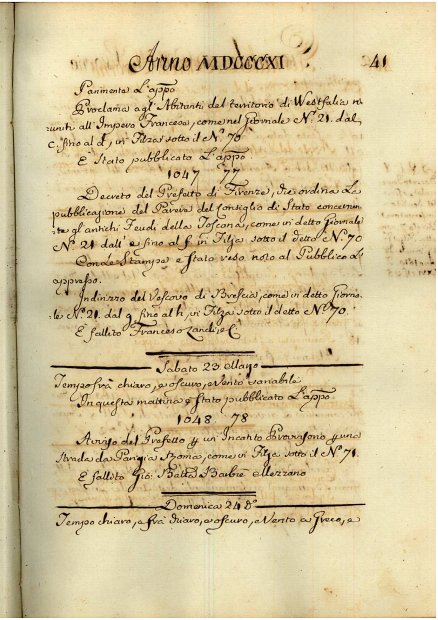 Anno MDCCCXI 41
Parimente L'appo
Proclama agl'Abitanti del territorio di Westfalia ri=
uniti all'Impero Francese, come nel Giornale N.° 21. dal
c, fino al d, in Filza sotto il N.° 70
E Stato pubblicato L'appo
1047 77
Decreto del Prefetto di Firenze, che ordina La
pubblicazione del Parere del Consiglio di Stato concernen=
te gl'antichi Feudi della Toscana, come in detto Giornale
N.° 21 dall' e fino al f in Filza sotto il detto N.° 70
Con Le Stampe e stato reso noto al Pubblico L'
appresso.
Indirizzo del Vescovo di Brescia, come in detto Giorna=
le N.° 21. dal g fino al h, in Filza sotto il detto N.° 70.
E fallito Francesco Landi, e C.
Sabato 23. Marzo
Tempo frà chiaro, e oscuro, e Vento variabile
In questa mattina e stato pubblicato L'appo
1048 78
Avviso del Prefetto p un Incanto Provvisorio p una
Strada da Parigi a Roma, come in Filza sotto il N.° 71.
E fallito Gio: Batta Barbiè Mezzano
Domenica 24 d°
Tempo chiaro, e frà chiaro, e oscuro, e Vento a Greco, e